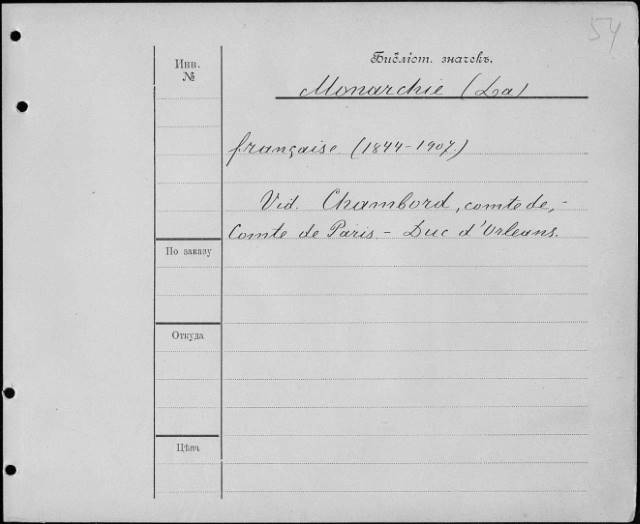 54
Инв.
№
Библіот. значекъ.
Monarchie (La)
française (1844-1907.)
Vid. Chambord, comte de, -
Comte de Paris. - Duc d'Orleans.
По заказу
Откуда
Цѣна